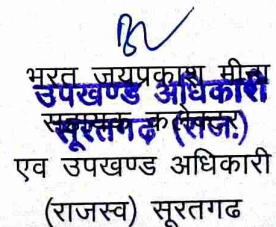 भरत जयप्रकाश मीना
उपखण्ड अधिकारी
सहायक कलेक्टर
सूरतगढ (राज.)
एव उपखण्ड अधिकारी
(राजस्व) सूरतगढ